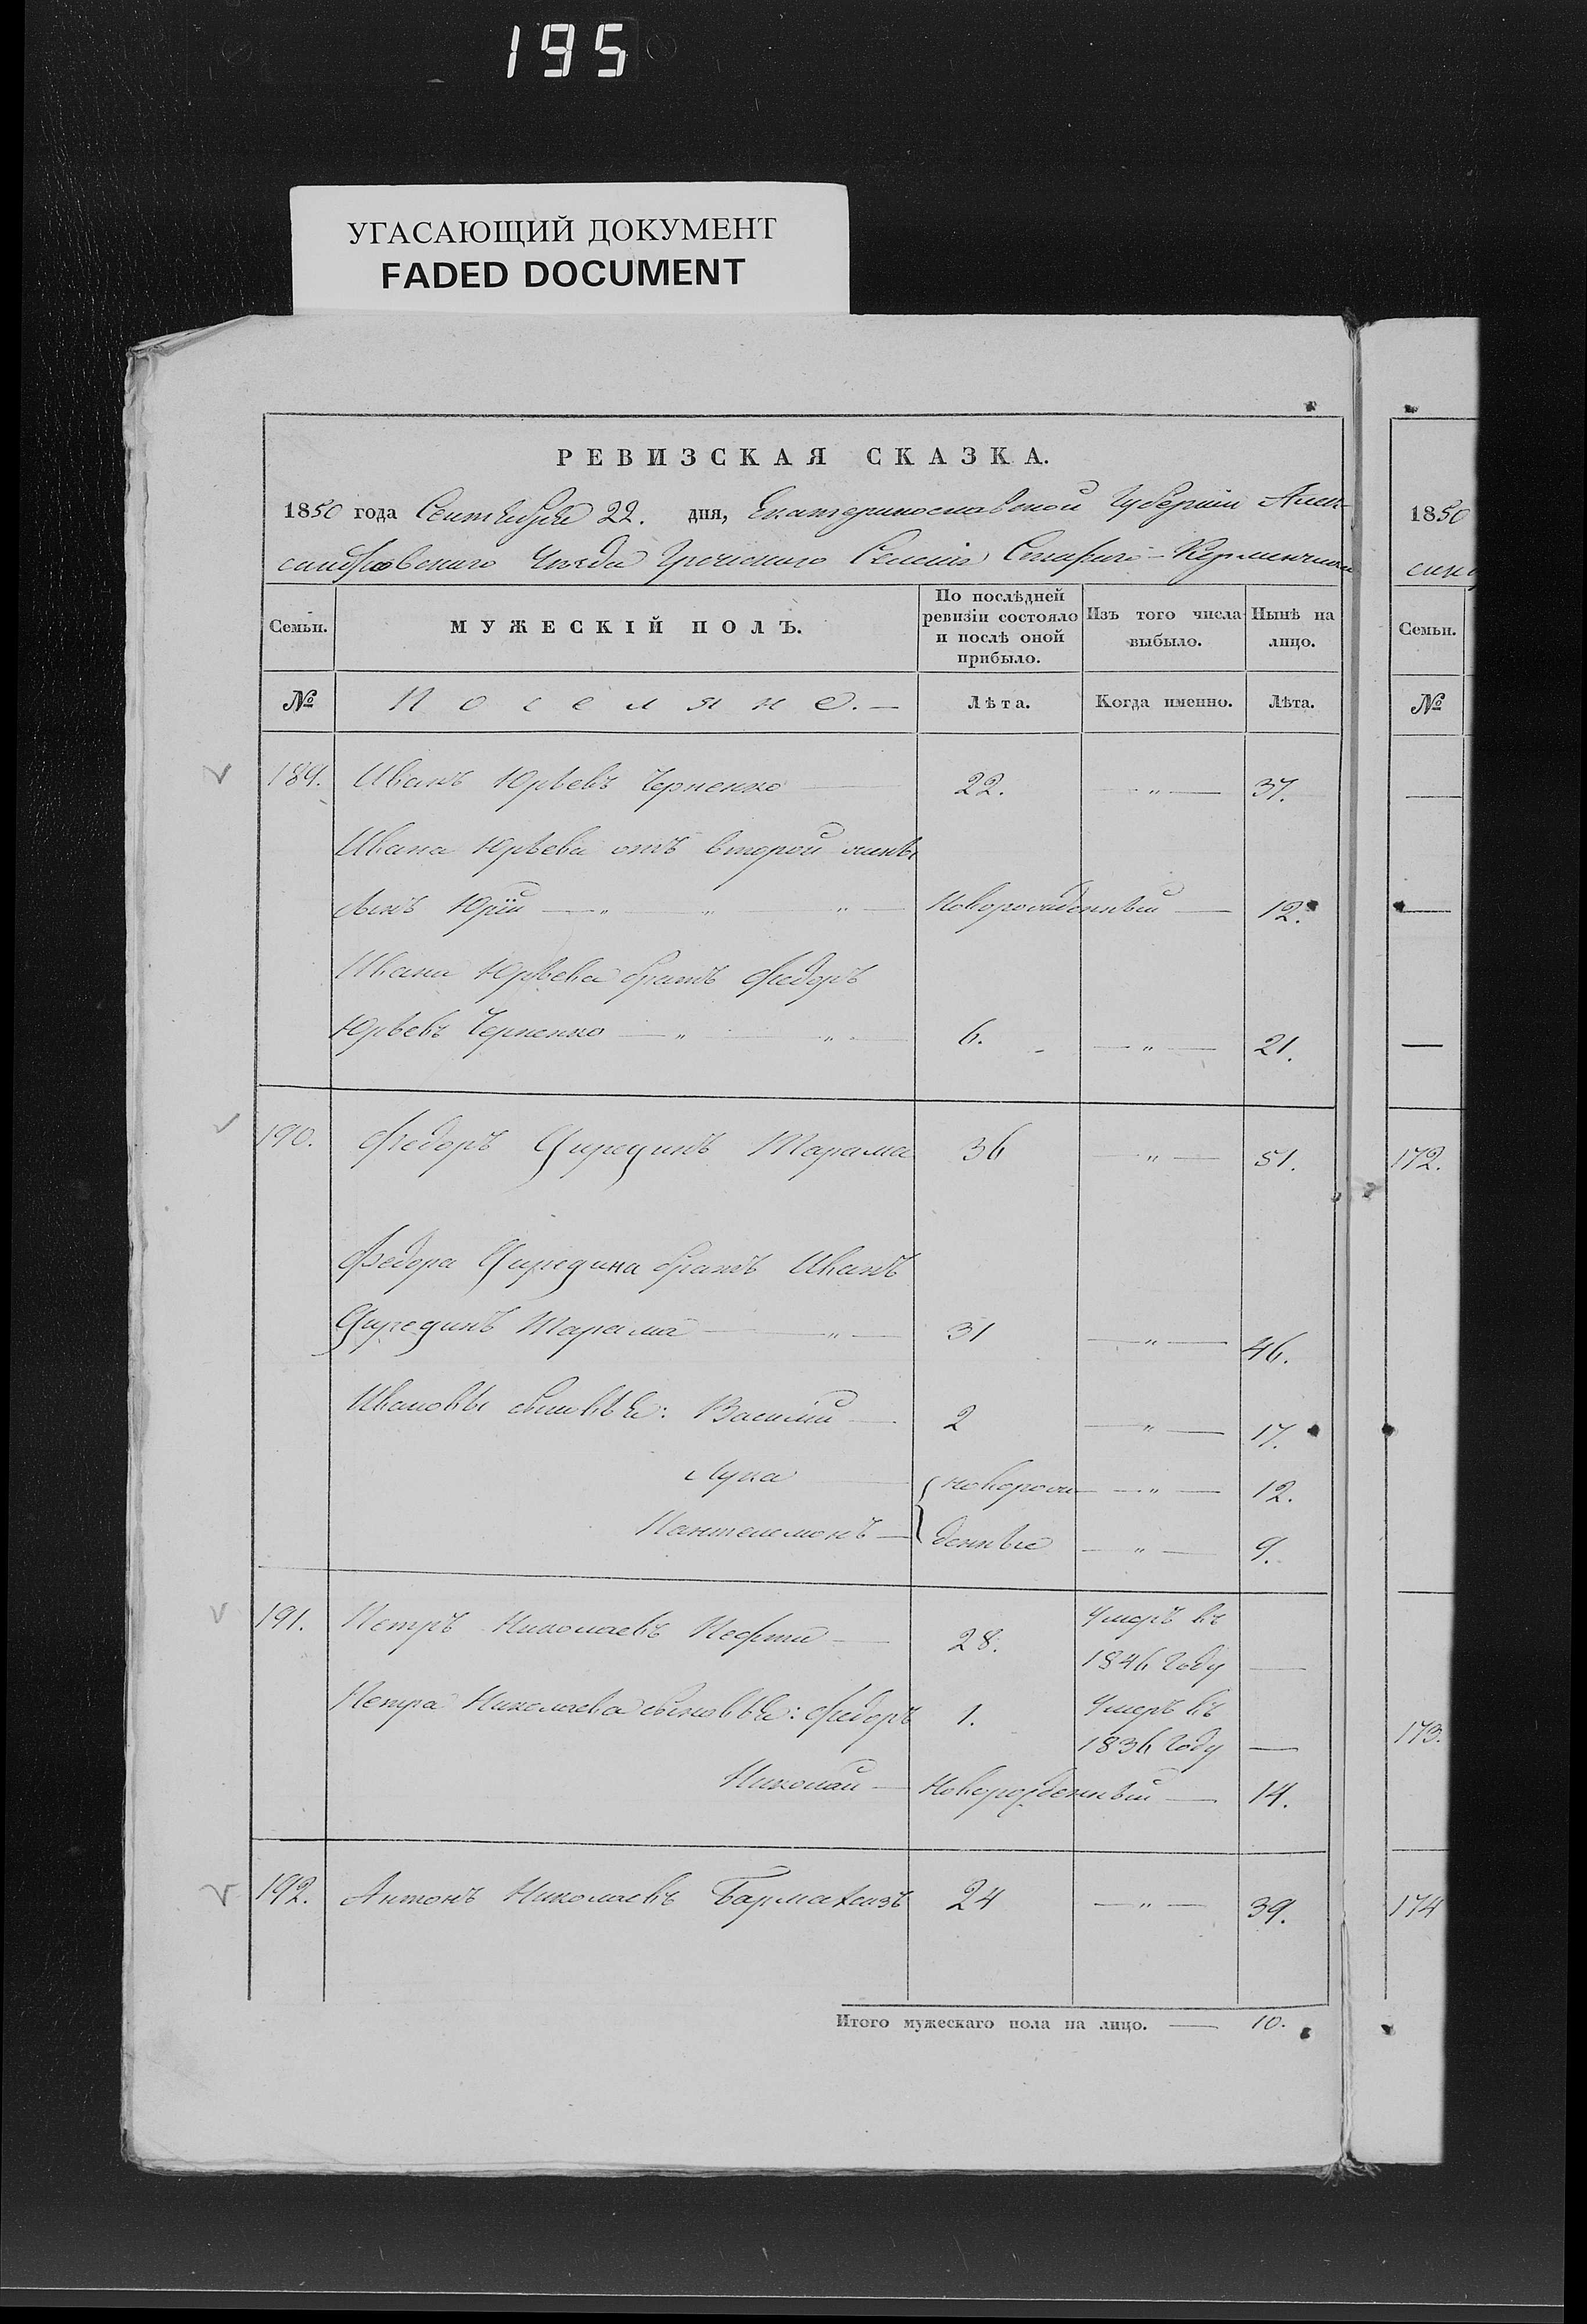 195
УГАСАЮЩИЙ ДОКУМЕНТ
FADED DOCUMENT
РЕВИЗСКАЯ СКАЗКА.
1850 года Сентября 22. дня, Екатеринославской Губерніи Алек-
сандровскаго Уѣзда Греческаго Селенія Стараго-Керменчика
Семьи. МУЖЕСКІЙ ПОЛЪ. По послѣдней ревизіи состояло и послѣ оной прибыло. Изъ того числа выбыло. Нынѣ на лицо.
№ Поселяне. — Лѣта. Когда именно. Лѣта.
189. Иванъ Юрьевъ Черненко 22. — " — 37.
Ивана Юрьева отъ второй жены
сынъ Юрій — " — " — " — Новорожденный — 12.
Ивана Юрьева братъ Федоръ
Юрьевъ Черненко — " — " — 6. — " — 21.
190. Федоръ Тарама 36 — " — 51.
Федора братъ Иванъ
Тарама — " — 31 — " — 46.
Ивановы сыновья: Василій — 2 — " — 17.
Лука — новорож- — " — 12.
Пантелимонъ — денные — " — 9.
191. Петръ Николаевъ — 28. Умеръ въ
1846 году —
Петра Николаева сыновья: Федоръ 1. Умеръ въ
1836 году —
Николай — Новорожденный — 14.
192. Антонъ Николаевъ 24 — " — 39.
Итого мужескаго пола на лицо. — 10.
1850
Семьи.
№
172.
173.
174